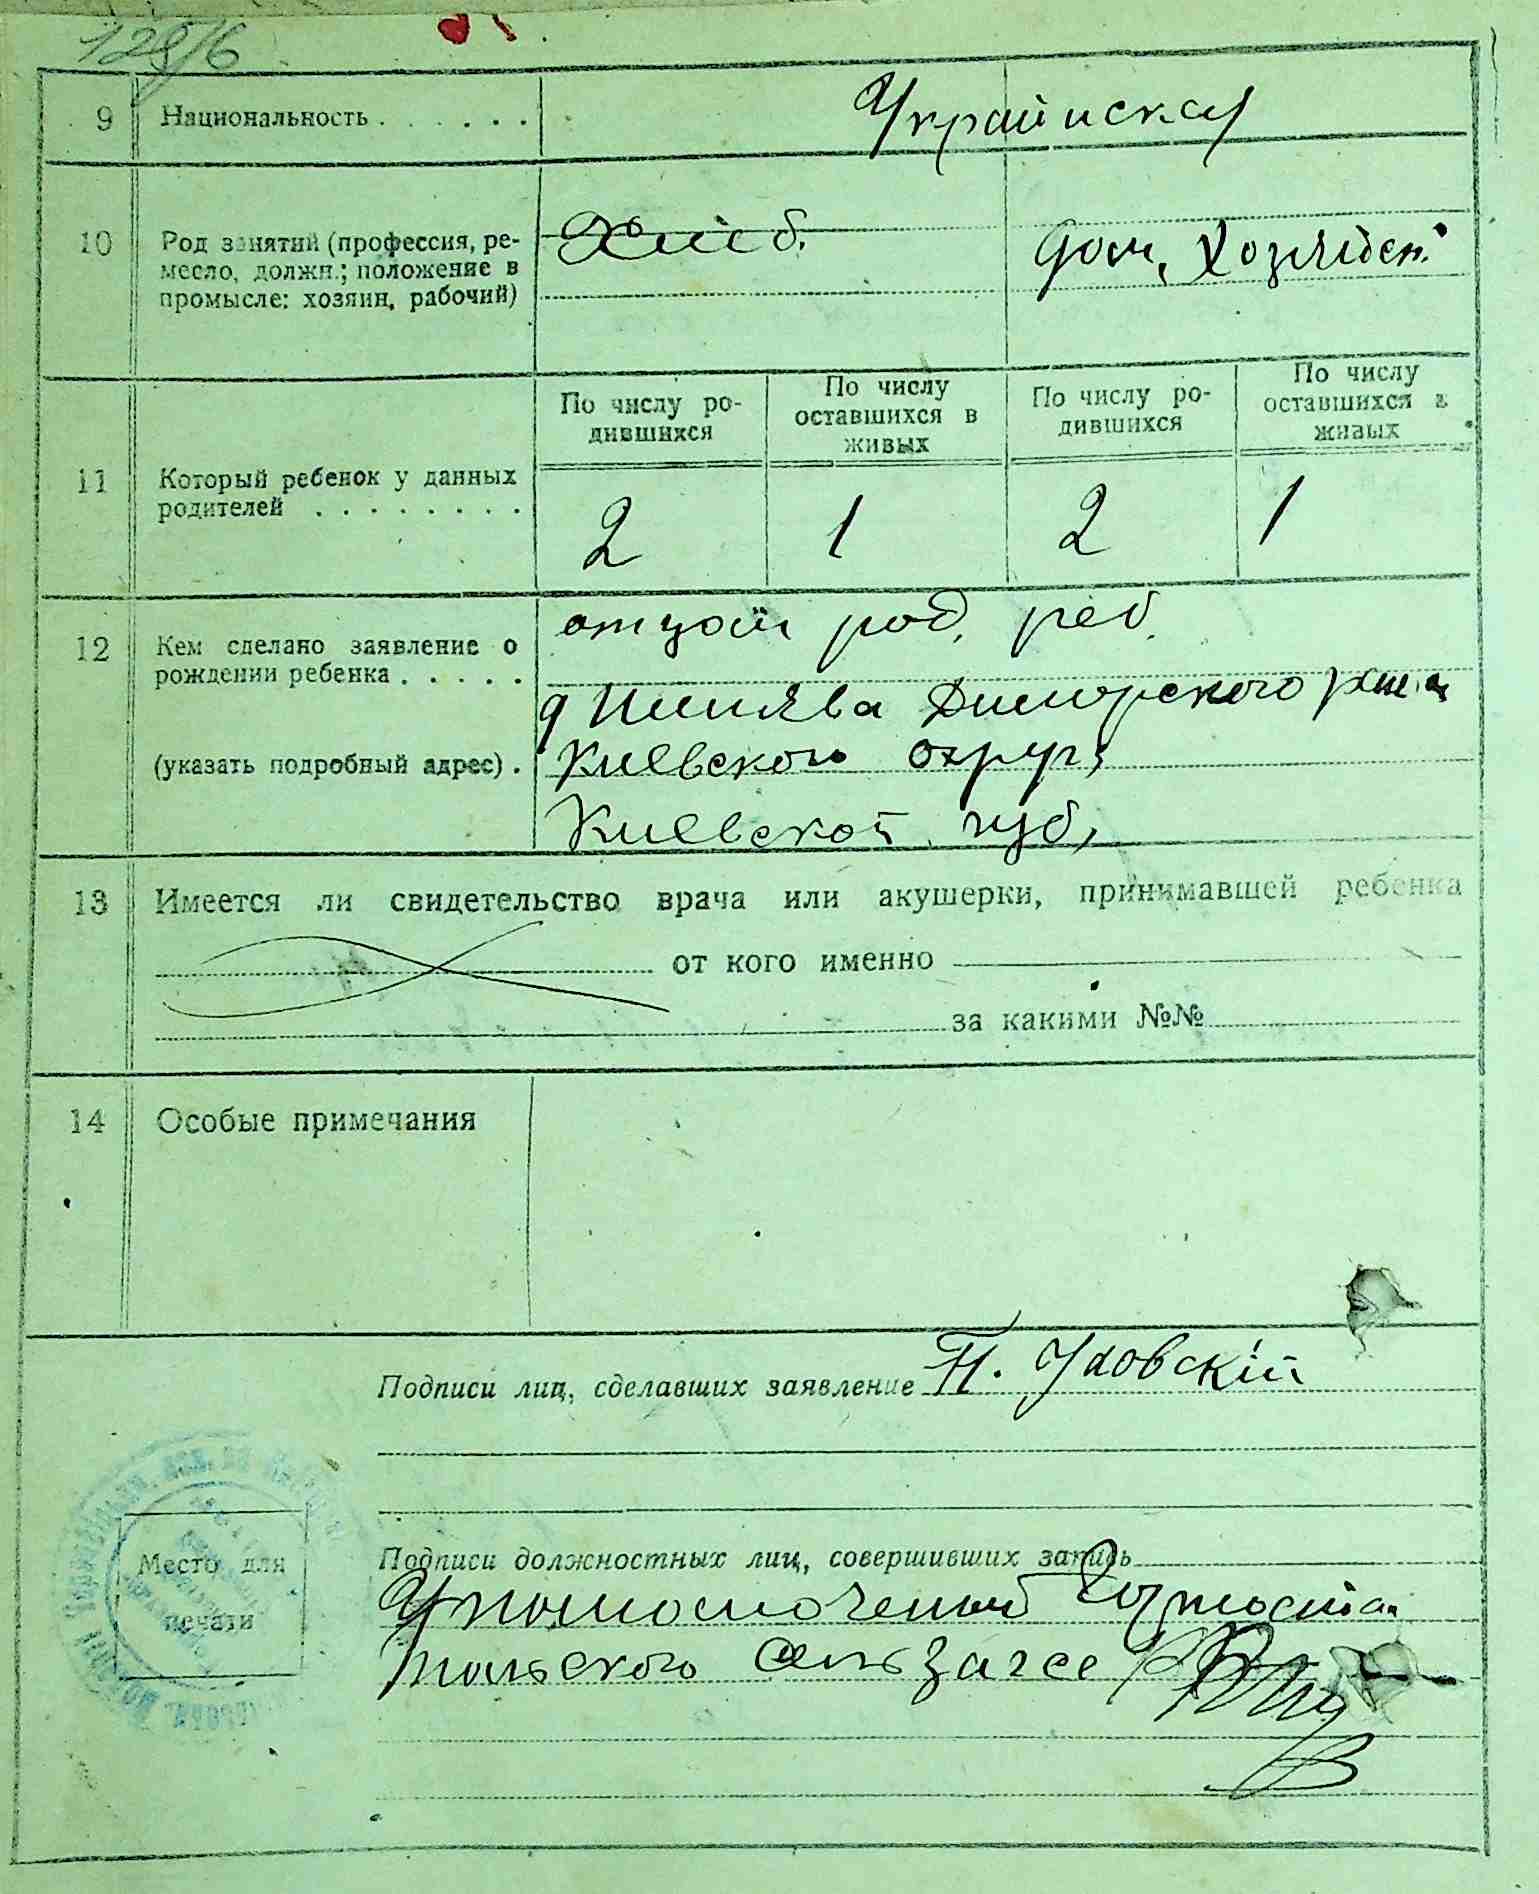 129/6
9 Национальность . . . . . . Украинская
10 Род занятий (профессия, ре-
месло, должн.; положение в
промысле: хозяин, рабочий)
Хлеб.
Дом. Хозяйст.
11 Который ребенок у данных
родителей . . . . . . . .
По числу ро-
дившихся
По числу
оставшихся в
живых
По числу ро-
дившихся
По числу
оставшихся в
живых
2 1 2 1
12 Кем сделано заявление о
рождении ребенка . . . . .
(указать подробный адрес) .
отцом род. реб.
д Шпилява Димерского
Киевского округа
Киевской губ,
13 Имеется ли свидетельство врача или акушерки, принимавшей ребенка
от кого именно
за какими №№
14 Особые примечания
Подписи лиц, сделавших заявление П. Уховскій
Место для
печати
Подписи должностных лиц, совершивших запись
Уполномоченный Горностай
польского